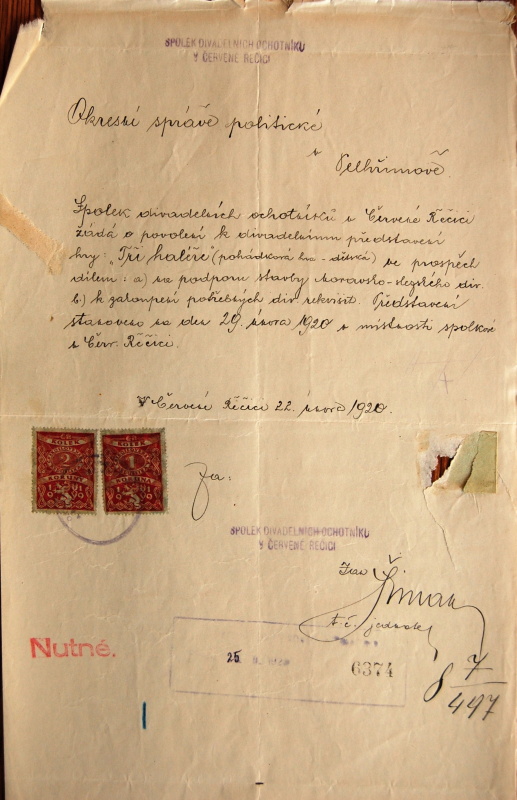 SPOLEK DIVADELNÍCH OCHOTNÍKŮ
V ČERVENÉ ŘEČICI
Okresní správě politické
v Pelhřimově.
Spolek divadelních ochotníků v Červené Řečici
žádá o povolení k divadelnímu představení
hry: „Tři haléře" (pohádková hra - dětská) ve prospěch
dílem: a) na podporu stavby moravsko-slezského div.
b.) k zakoupení potřebných div. rekvisit. Představení
stanoveno na den 29. února 1920 v místnosti spolkové
v Červ. Řečici.
V Červené Řečici 22. února 1920.
KOLEK
KOLEK
KORUNA
Za:
SPOLEK DIVADELNÍCH OCHOTNÍKŮ
V ČERVENÉ ŘEČICI
t. č. jednatel
Nutné.
25
6374
7
497